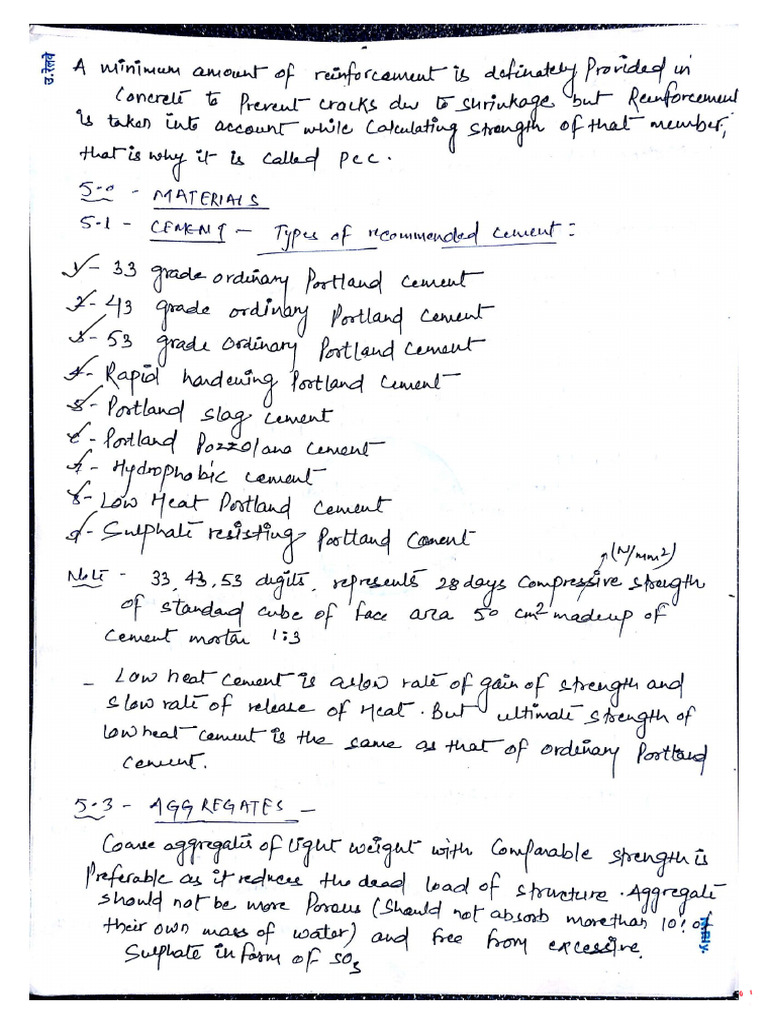 उ.रेलवे
A minimum amount of reinforcement is definately Provided in
Concrete to Prevent cracks due to shrinkage but Reinforcement
is taken into account while Calculating strength of that member,
that is why it is called pcc.
5.0 - MATERIALS
5.1 - CEMENT - Types of recommended cement :
1 - 33 grade ordinary Portland cement
2 - 43 grade ordinary Portland cement
3 - 53 grade ordinary Portland cement
4 - Rapid hardening Portland cement
5 - Portland slag cement
6 - Portland Pozzolana cement
7 - Hydrophobic cement
8 - Low Heat Portland cement
9 - Sulphate resisting Portland Cement
(N/mm2)
Note - 33, 43, 53 digits, represents 28 days compressive strength
of standard cube of face area 50 cm2 madeup of
cement mortar 1:3
- Low heat cement is a slow rate of gain of strength and
slow rate of release of Heat. But ultimate strength of
low heat cement is the same as that of ordinary Portland
cement.
5.3 - AGGREGATES -
Coarse aggregates of light weight with Comparable strength is
Preferable as it reduces the dead load of structure. Aggregate
should not be more Porous (should not absorb more than 10% of
their own mass of water) and free from excessive
Sulphate in form of SO3